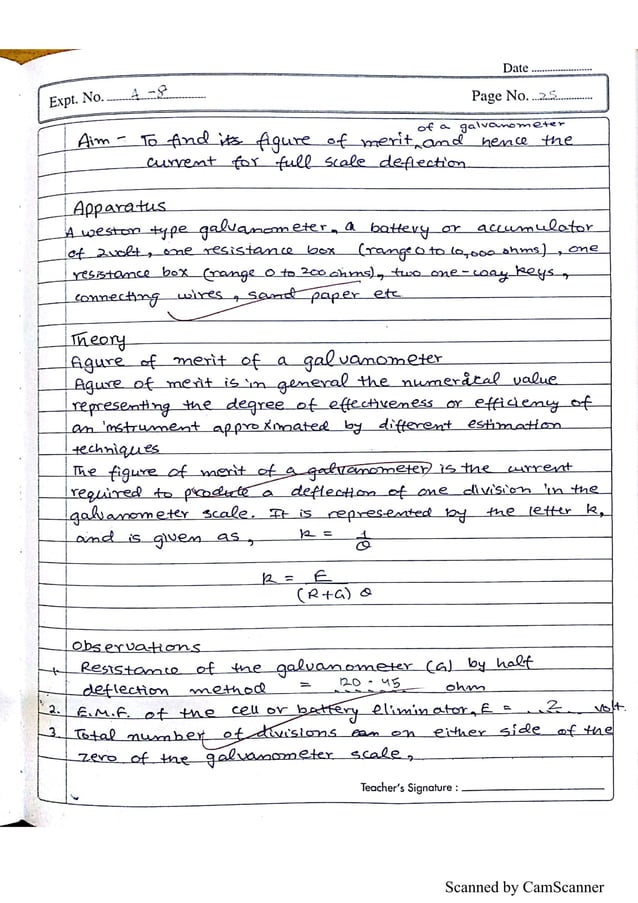 Date
Expt. No. A-8
Page No. 25
of a galvanometer
Aim - To find its figure of merit, and hence the
current for full scale deflection
Apparatus
A weston type galvanometer, a battery or accumulator
of 2volt, one resistance box (range 0 to 10,000 ohms), one
resistance box (range 0 to 200 ohms), two one-way keys,
connecting wires, sand paper etc
Theory
figure of merit of a galvanometer
figure of merit is in general the numerical value
representing the degree of effectiveness or efficiency of
an instrument approximated by different estimation
techniques
The figure of merit of a galvanometer is the current
required to produce a deflection of one division in the
galvanometer scale. It is represented by the letter k,
and is given as, k = I/θ
k = E/(R+G) θ
Observations
1. Resistance of the galvanometer (G) by half
deflection method = 120.45 ohm
2. E.M.F. of the cell or battery eliminator, E = 2 volt.
3. Total number of divisions on either side of the
zero of the galvanometer scale,
Teacher's Signature :
Scanned by CamScanner